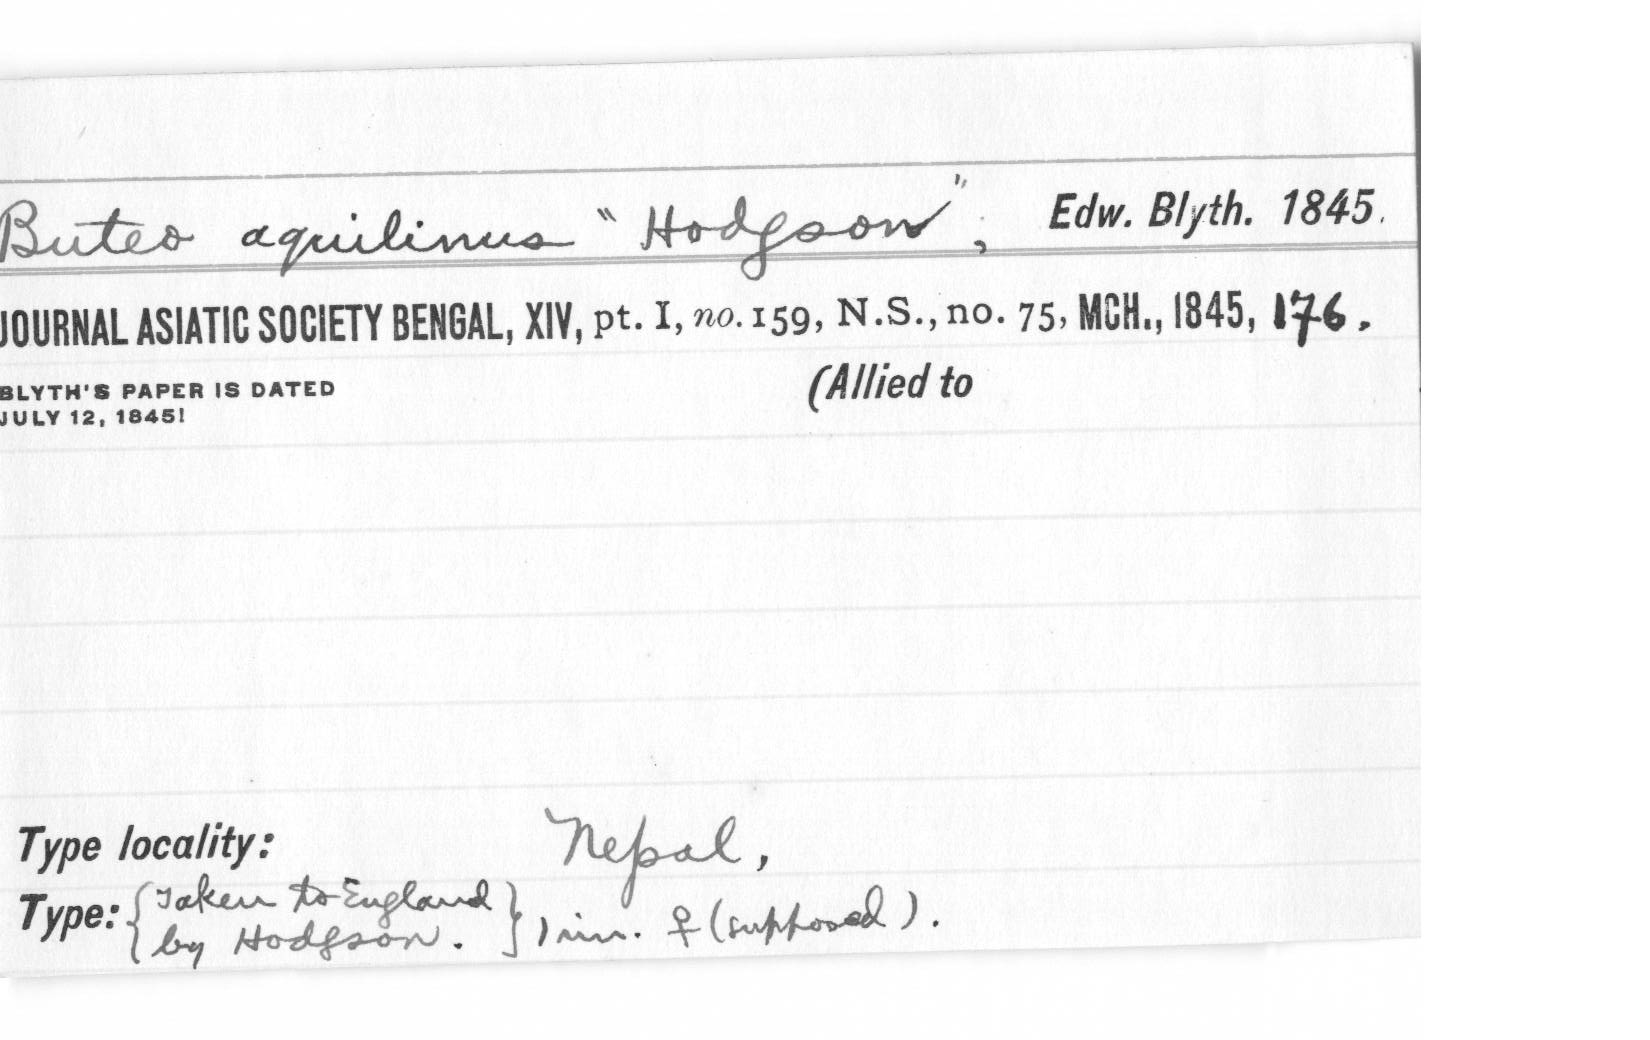 Buteo aquilinus "Hodgson", Edw. Blyth. 1845.
JOURNAL ASIATIC SOCIETY BENGAL, XIV, pt. I, no. 159, N.S., no. 75, MCH., 1845, 176.
BLYTH'S PAPER IS DATED
JULY 12, 1845!
(Allied to
Type locality: Nepal,
Type: {Taken to England
by Hodgson.}, im. ♀ (supposed).